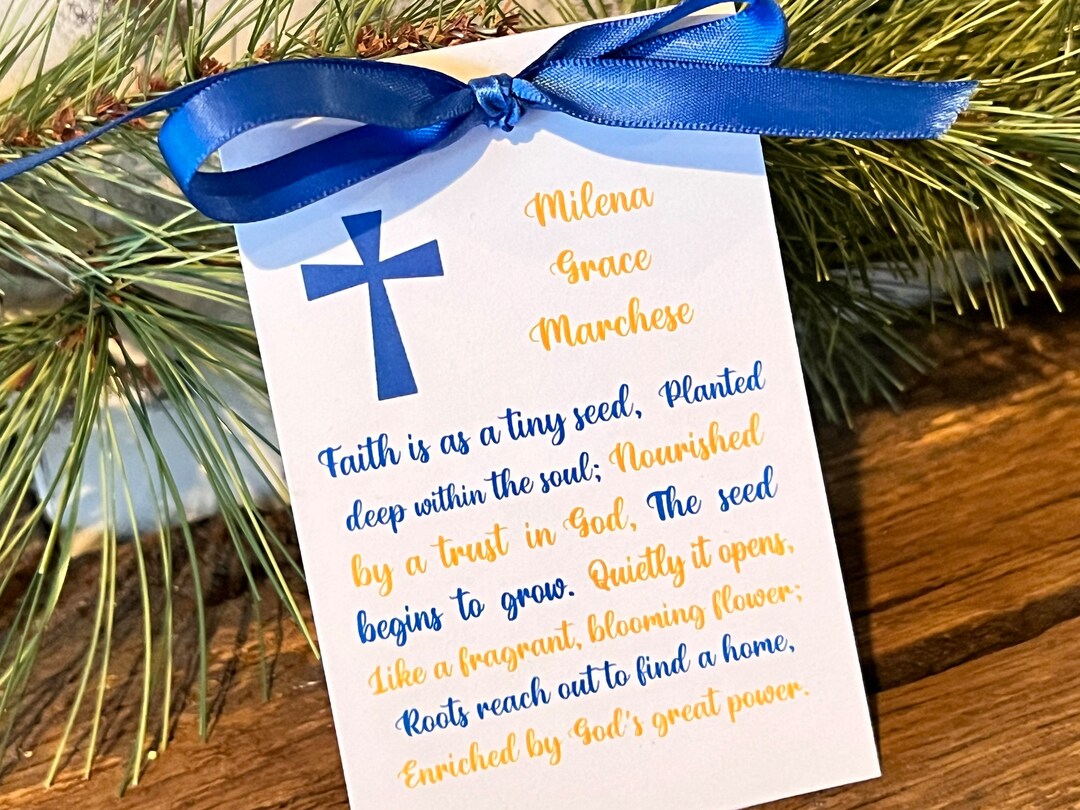 Milena
Grace
Marchese
Faith is as a tiny seed, Planted
deep within the soul; Nourished
by a trust in God, The seed
begins to grow. Quietly it opens,
Like a fragrant, blooming flower;
Roots reach out to find a home,
Enriched by God's great power.